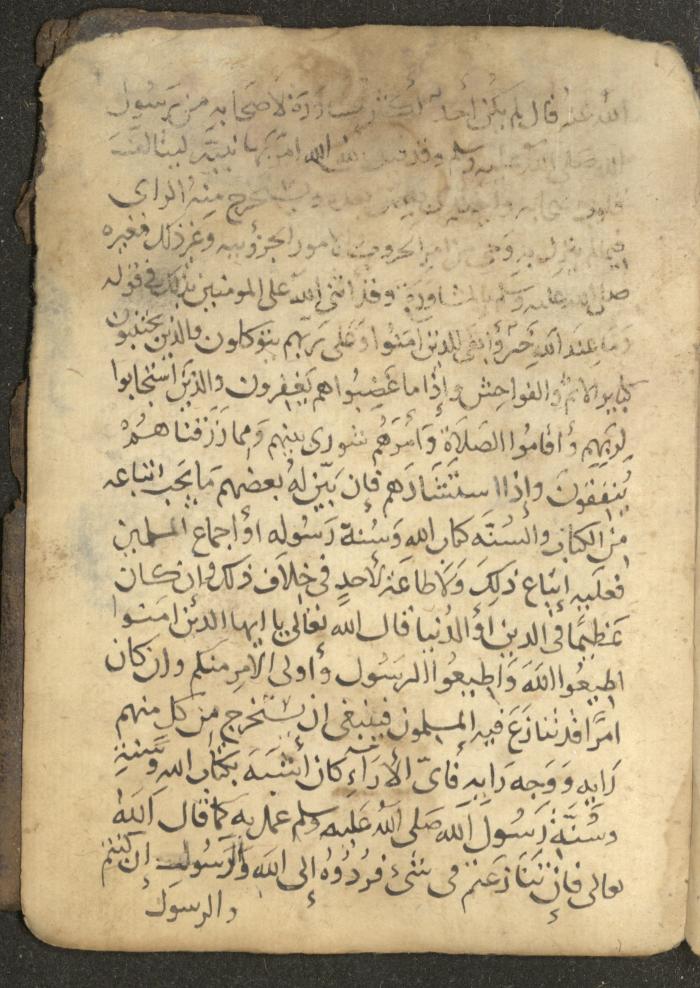 الله عنه قال لم يكن احد أكثر مشاورة لأصحابه من رسول
الله صلى الله عليه وسلم وقد قيل ان الله امر بها نبيه لتاليف
قلوب اصحابه وليقتدى به من بعده وليستخرج منهم الراى
فيما لم ينزل به وحى من امر الحروب والامور الجزؤييه وغير ذلك فغيره
صلى الله عليه وسلم بالمشاورة وقد اثنى الله على المومنين بذلك فى قوله
وما عند الله خير وأبقى للذين امنوا وعلى ربهم يتوكلون والذين يجتنبون
كبايرالاثم والفواحش وإذا ما غضبوا هم يغفرون والذين استجابوا
لربهم وأقاموا الصلاة وأمرهم شورى بينهم ومما رزقناهم
ينفقون وإذا استشارهم فإن بين له بعضهم ما يجب اتباعه
من الكتاب والسنة كتاب الله وسنة رسوله او اجماع المسلمين
فعليه إتباع ذلك ولا طاعة لأحد فى خلاف ذلك وان كان
عظيما فى الدين اوالدنيا قال الله تعالى يا ايها الذين امنوا
اطيعوا الله واطيعوا الرسول وأولى الأمر منكم وان كان
امرا قد تنازع فيه المسلمون فينبغى ان يستخرج من كل منهم
رايه ووجه رايه فاى الأراء كان أشبه بكتاب الله وسنة
وسنة رسول الله صلى الله عليه وسلم عمل به كما قال الله
تعالى فإن تنازعتم فى شئ فردوه إلى الله والرسول إن كنتم
والرسول